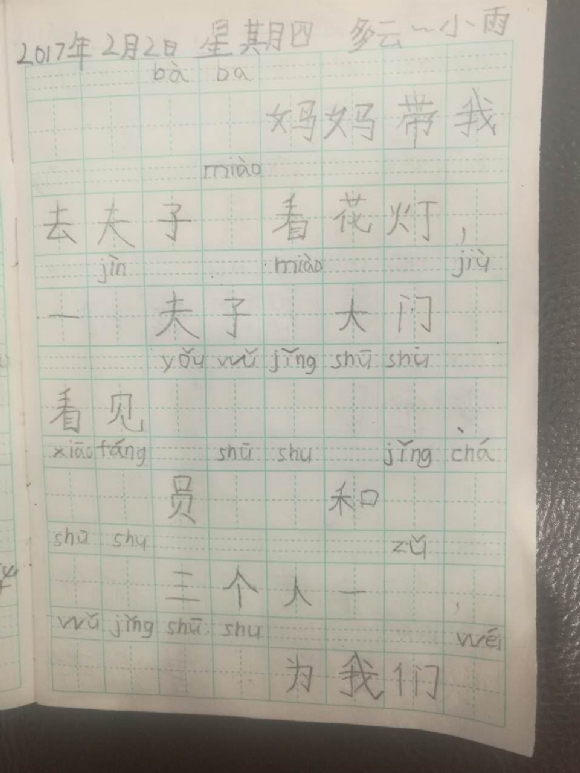 2017年2月2日 星期四 多云~小雨
bà ba
妈妈带我
miào
去夫子 看花灯，
jìn miào jiù
一 夫子 大门
yǒu wǔ jǐng shū shu
看见
xiāo fáng shū shu jǐng chá
员 和
shū shu zǔ
三个人一 ，
wǔ jǐng shū shu wéi
为我们